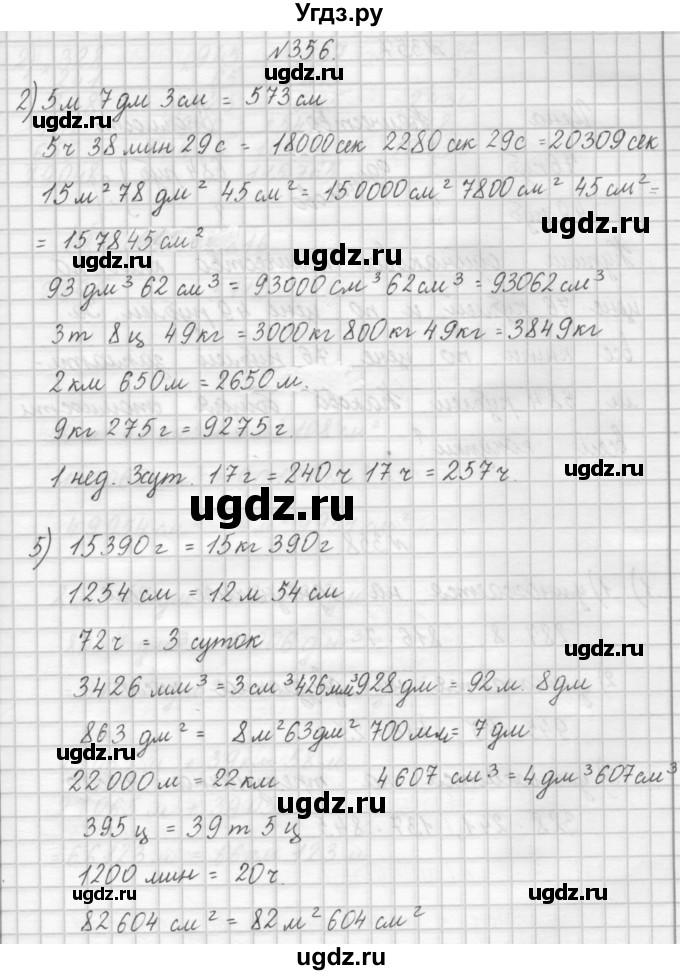 Угдз.ру
№356.
ugdz.ru
2) 5м 7дм 3см = 573см
ugdz.ru ugdz.ru
5ч 38мин 29с = 18000сек 2280сек 29с = 20309сек
15м² 78дм² 45см² = 150000см² 7800см² 45см² =
ugdz.ru
= 157845см²
ugdz.ru
93дм³ 62см³ = 93000см³ 62см³ = 93062см³
3т 8ц 49кг = 3000кг 800кг 49кг = 3849кг
2км 650м = 2650м.
9кг 275г = 9275г.
1нед. 3сут. 17г = 240ч 17ч = 257ч.
ugdz.ru
ugdz.ru
5) 15390г = 15кг 390г
1254см = 12м 54см
72ч = 3 суток
ugdz.ru
3426мм³ = 3см³ 426мм³ 928дм = 92м. 8дм
863дм² = 8м² 63дм² 700мм = 7дм
ugdz.ru
22000м = 22км 4607см³ = 4дм³ 607см³
ugdz.ru
395ц = 39т 5ц
1200мин = 20ч.
ugdz.ru ugdz.ru
82604см² = 82м² 604см²
ugdz.ru